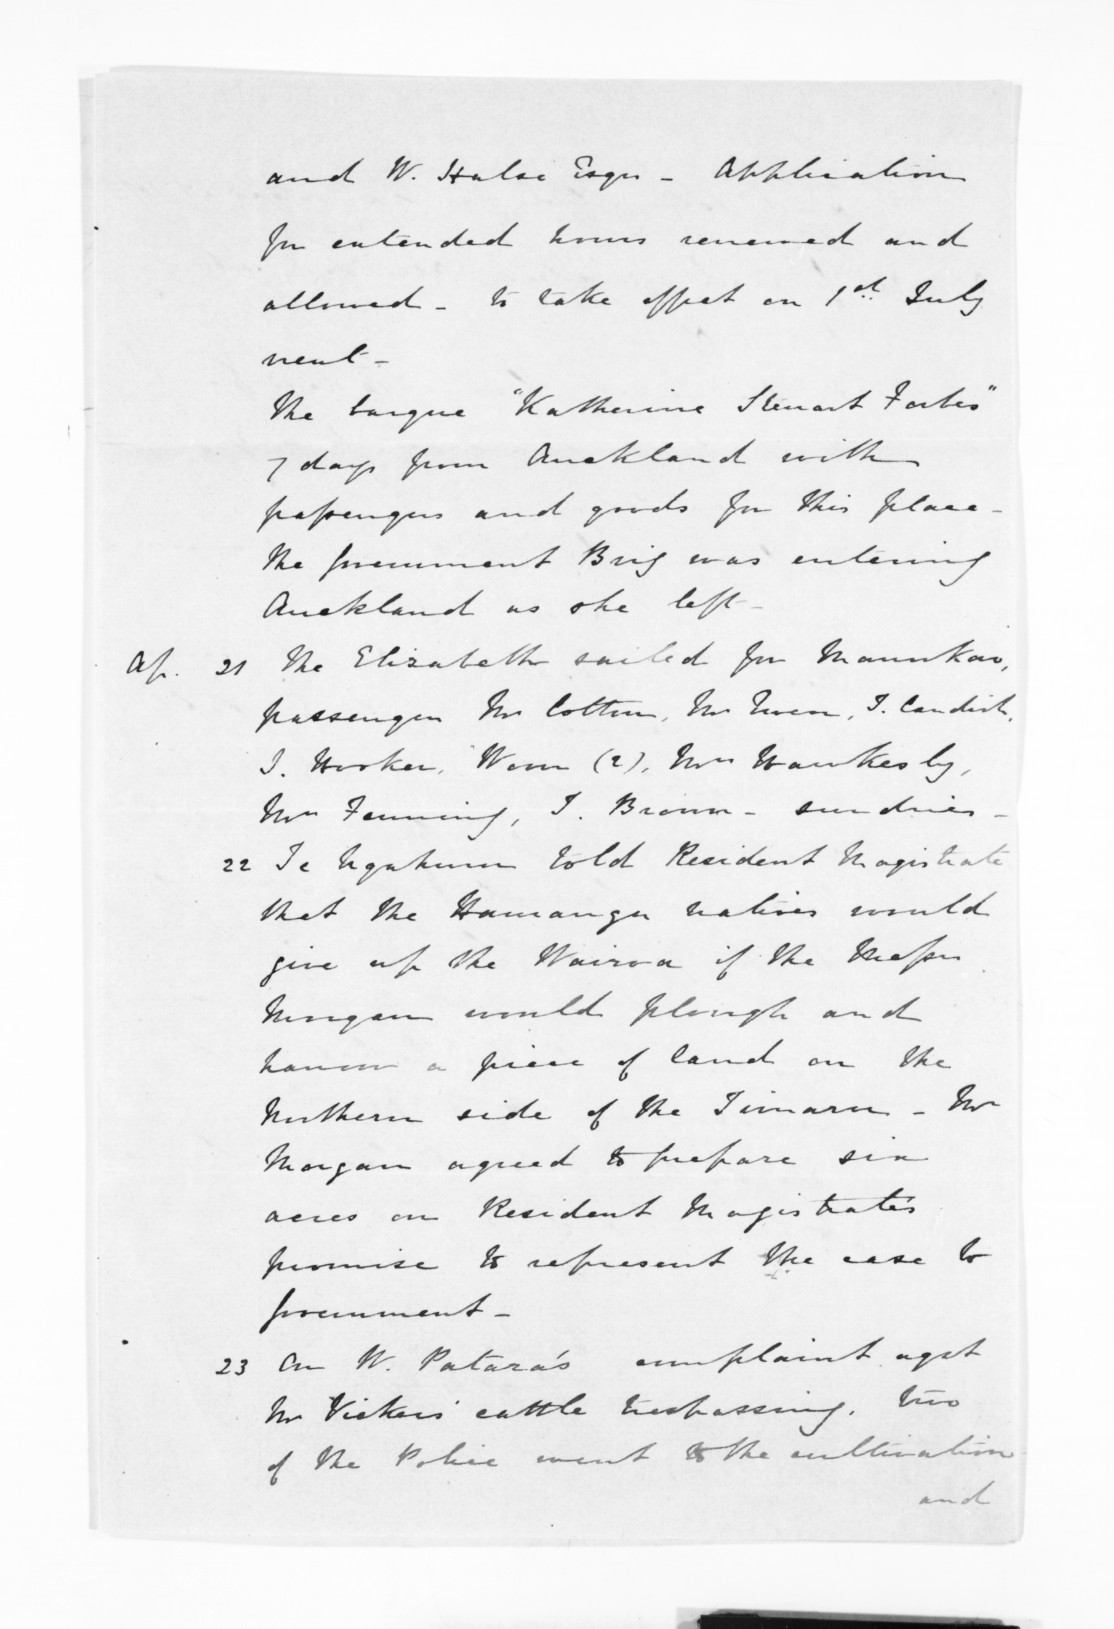 and W. Halse Esqre - Application
for extended hours renewed and
allowed - to take effect on 1st July
next -
The barque "Katherine Stewart Forbes"
7 days from Auckland with
passengers and goods for this place -
The Government Brig was entering
Auckland as she left -
Ap. 21 The Elizabeth sailed for Manukao,
passengers Mr Cottam, Mr Newn, J. Candish,
J. Hooker, Woon (2), Mrs Hawkesby,
Mrs Fenning, J. Brown - sundries -
22 Te Ngahuru told Resident Magistrate
that the Hauranga natives would
give up the Wairoa if the Messrs
Morgan would plough and
harrow a piece of land on the
Northern side of the Timaru - Mr
Morgan agreed to prepare six
acres on Resident Magistrate's
promise to represent the case to
Government -
23 On W. Patara's complaint agst
Mr Vickers' cattle trespassing, two
of the Police went to the cultivation
and